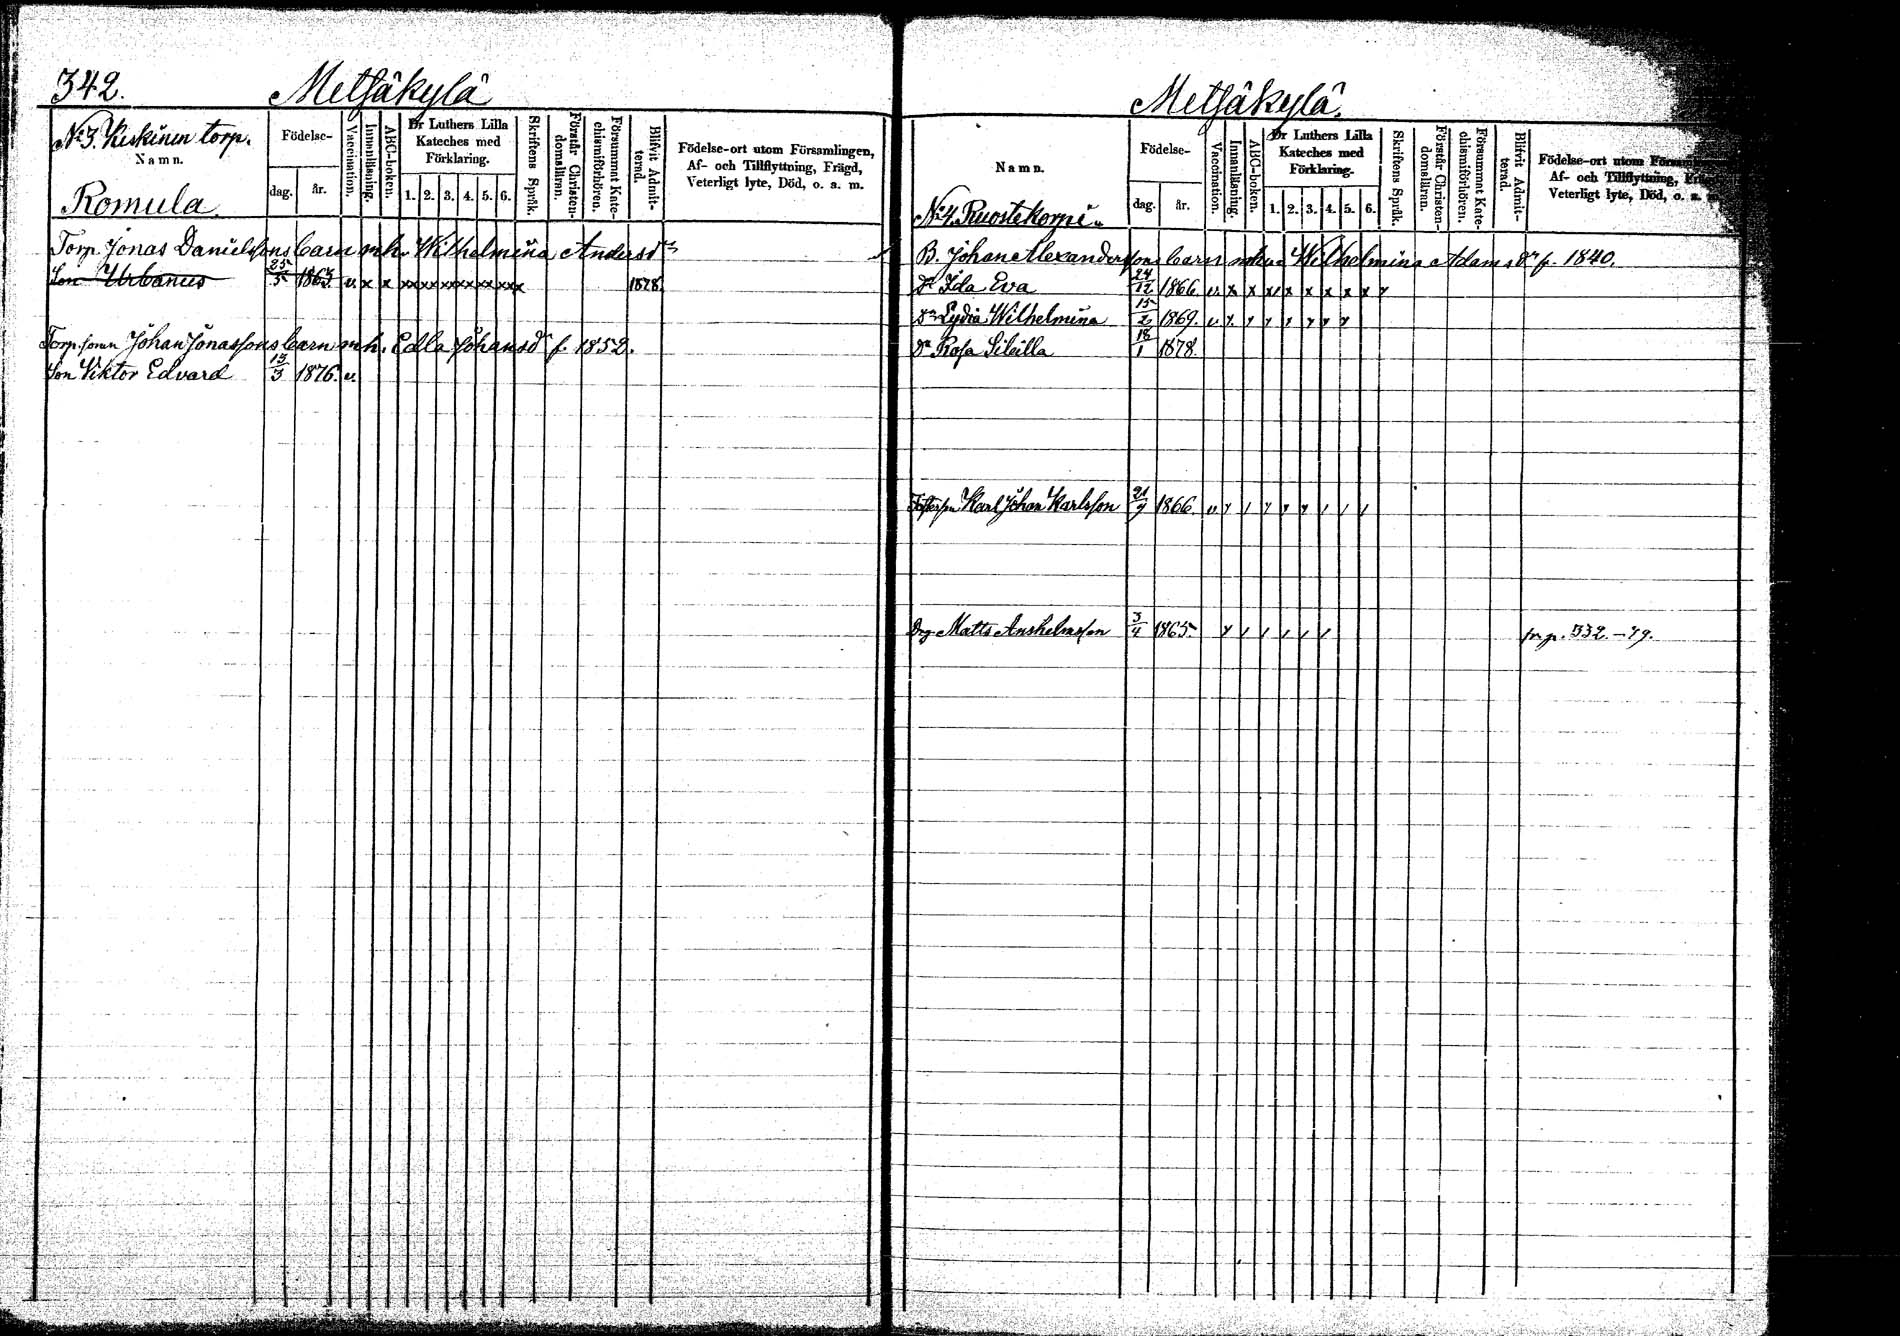 342.
Metsäkylä
No 3. Keskinen torp.
Namn.
Romula.
Födelse-
dag.
år.
Vaccination.
Innanläsning.
ABC-boken.
Dr Luthers Lilla
Kateches med
Förklaring.
1. 2. 3. 4. 5. 6.
Skriftens Språk.
Förstår Christen-
domsläran.
Försummat Kate-
chismiförhören.
Blifvit Admit-
terad.
Födelse-ort utom Församlingen,
Af- och Tillflyttning, Frägd,
Veterligt lyte, Död, o. a. m.
Torp. Jonas Danielssons barn m. h. Wilhelmina Andersdr
Son Urbanus 25/5 1863. v. x x xx xx xx xx xx xx 1878.
Torp. sonen Johan Jonassons barn m. h. Edla Johansdr f. 1852.
Son Viktor Edvard 13/3 1876. v.
Metsäkylä.
Namn.
No 4. Ruostekorpi.
Födelse-
dag.
år.
Vaccination.
Innanläsning.
ABC-boken.
Dr Luthers Lilla
Kateches med
Förklaring.
1. 2. 3. 4. 5. 6.
Skriftens Språk.
Förstår Christen-
domsläran.
Försummat Kate-
chismiförhören.
Blifvit Admit-
terad.
Födelse-ort utom
Af- och Tillflyttning,
Veterligt lyte, Död, o. a. m.
B. Johan Alexanderssons barn Wilhelmina Adamsdr f. 1840.
Dr Ida Eva 24/12 1866. v x x x x x x x x
Dr Lydia Wilhelmina 15/2 1869. v
Dr Rosa Sibilla 18/1 1878.
Fosterson Karl Johan Karlsson 21/9 1866. v
Drg Matts Anshelmsson 3/4 1865. fr p. 332. -79.